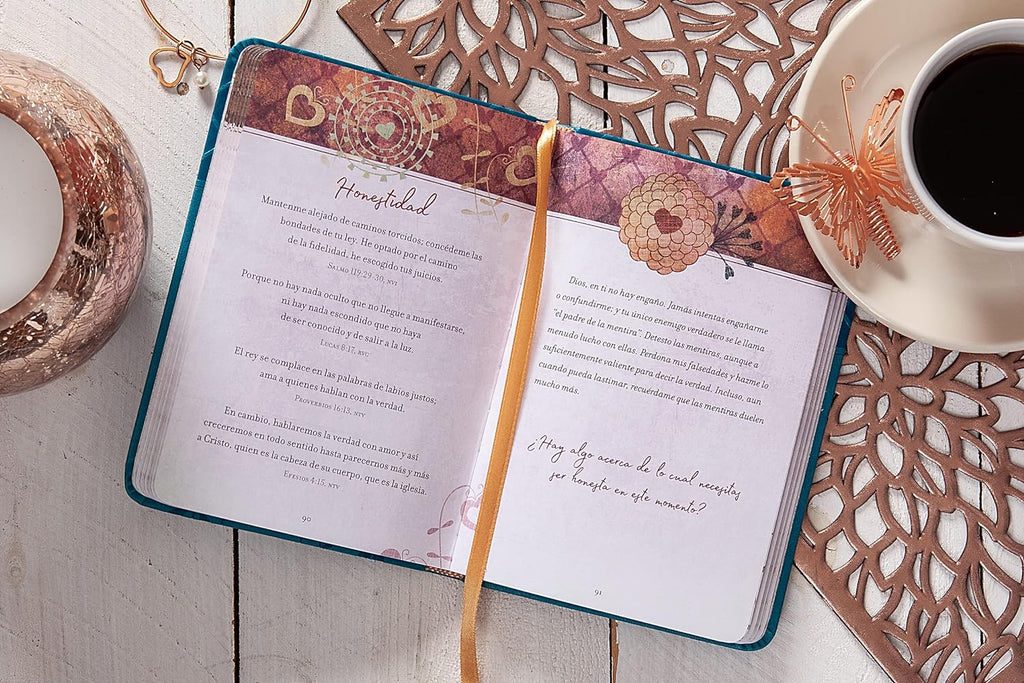 Honestidad
Mantenme alejado de caminos torcidos; concédeme las
bondades de tu ley. He optado por el camino
de la fidelidad, he escogido tus juicios.
Salmo 119:29-30, nvi
Porque no hay nada oculto que no llegue a manifestarse,
ni hay nada escondido que no haya
de ser conocido y de salir a la luz.
Lucas 8:17, rvc
El rey se complace en las palabras de labios justos;
ama a quienes hablan con la verdad.
Proverbios 16:13, ntv
En cambio, hablaremos la verdad con amor y así
creceremos en todo sentido hasta parecernos más y más
a Cristo, quien es la cabeza de su cuerpo, que es la iglesia.
Efesios 4:15, ntv
90
Dios, en ti no hay engaño. Jamás intentas engañarme
o confundirme; y tu único enemigo verdadero se le llama
"el padre de la mentira". Detesto las mentiras, aunque a
menudo lucho con ellas. Perdona mis falsedades y hazme lo
suficientemente valiente para decir la verdad. Incluso, aun
cuando pueda lastimar, recuérdame que las mentiras duelen
mucho más.
¿Hay algo acerca de lo cual necesitas
ser honesta en este momento?
91